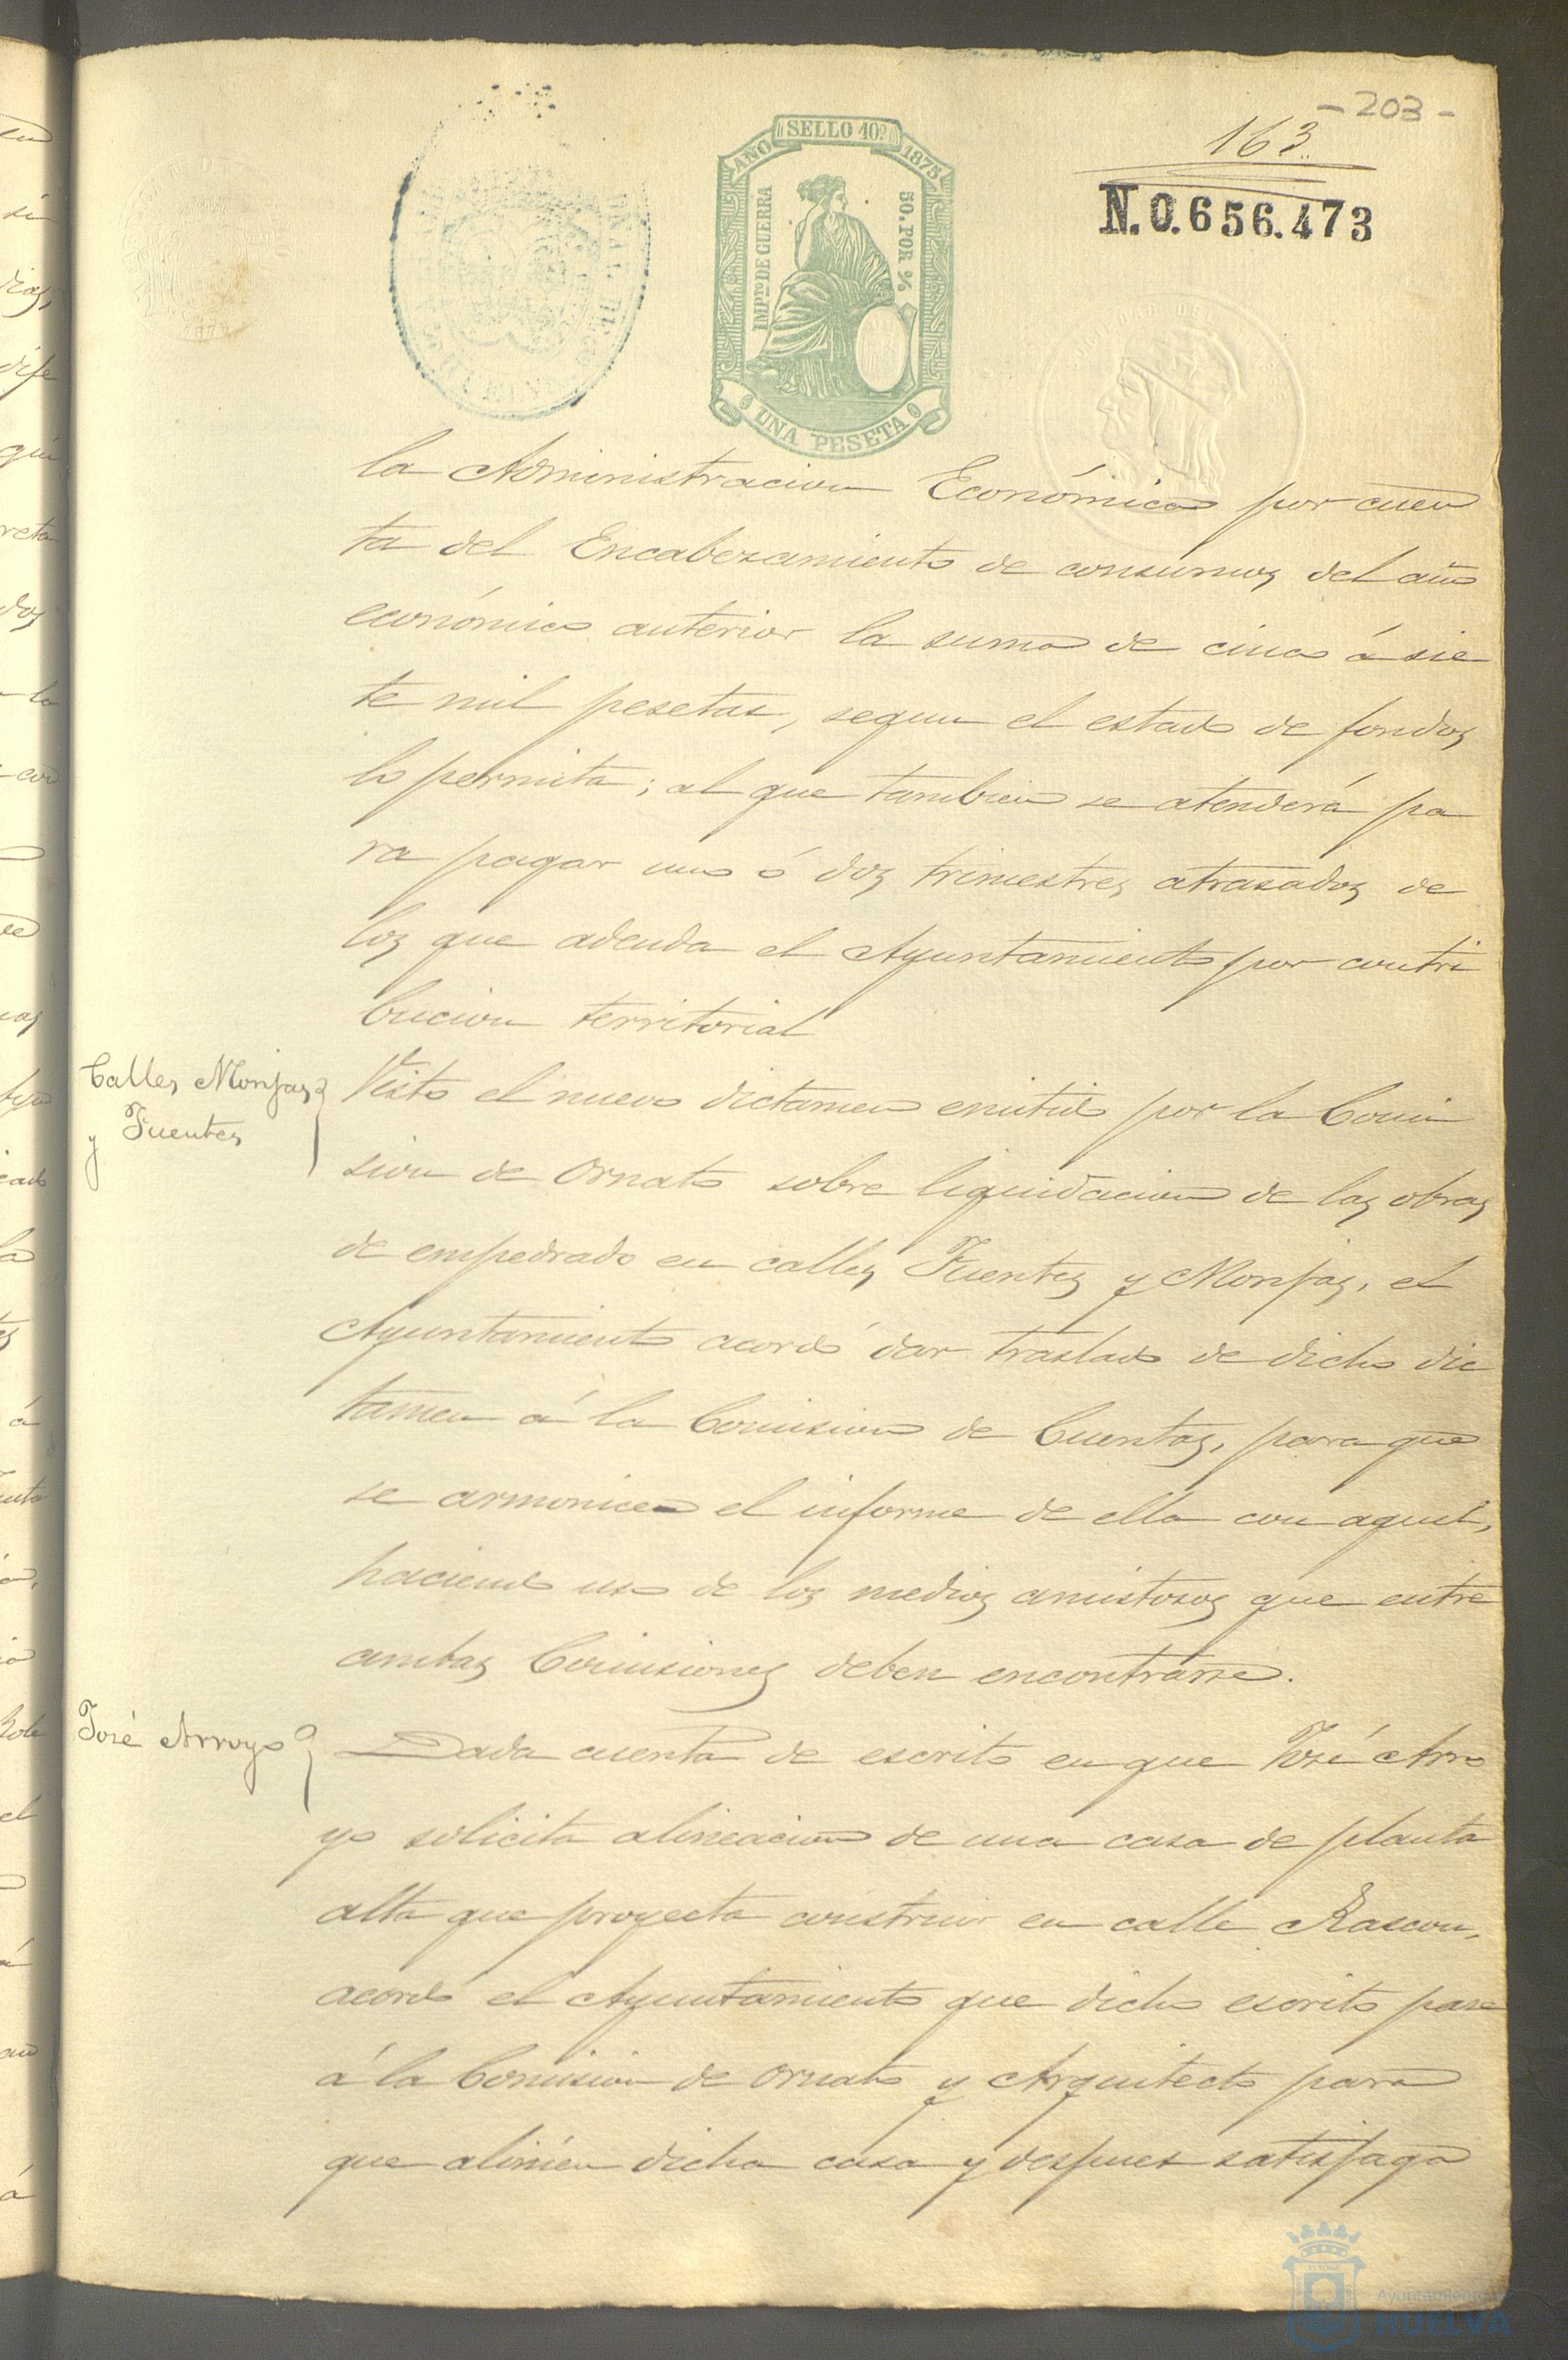 - 203 -
163.
AÑO SELLO 10º 1875
IMPTO DE GUERRA
50. POR %
UNA PESETA
N. 0.656.473
la Administracion Económica por cuen
ta del Encabezamiento de consumos del año
económico anterior la suma de cinco á sie
te mil pesetas, segun el estado de fondos
lo permita; al que tambien se atenderá pa
ra pagar uno ó dos trimestres atrasados de
los que adeuda el Ayuntamiento por contri
bucion territorial
Calles Monjas
y Fuentes
Visto el nuevo dictamen emitido por la Comi
sion de Ornato sobre liquidacion de las obras
de empedrado en calles Fuentes y Monjas, el
Ayuntamiento acordó dar traslado de dicho dic
tamen á la Comision de Cuentas, para que
se armonice el informe de ella con aquel,
haciendo uso de los medios amistosos que entre
ambas Comisiones deben encontrarse.
José Arroyo
Dada cuenta de escrito en que José Arro
yo solicita alineacion de una casa de planta
alta que proyecta construir en calle Rascon,
acordó el Ayuntamiento que dicho escrito pase
á la Comision de Ornato y Arquitecto para
que alinien dicha casa y despues satisfaga
Ayuntamiento
HUELVA